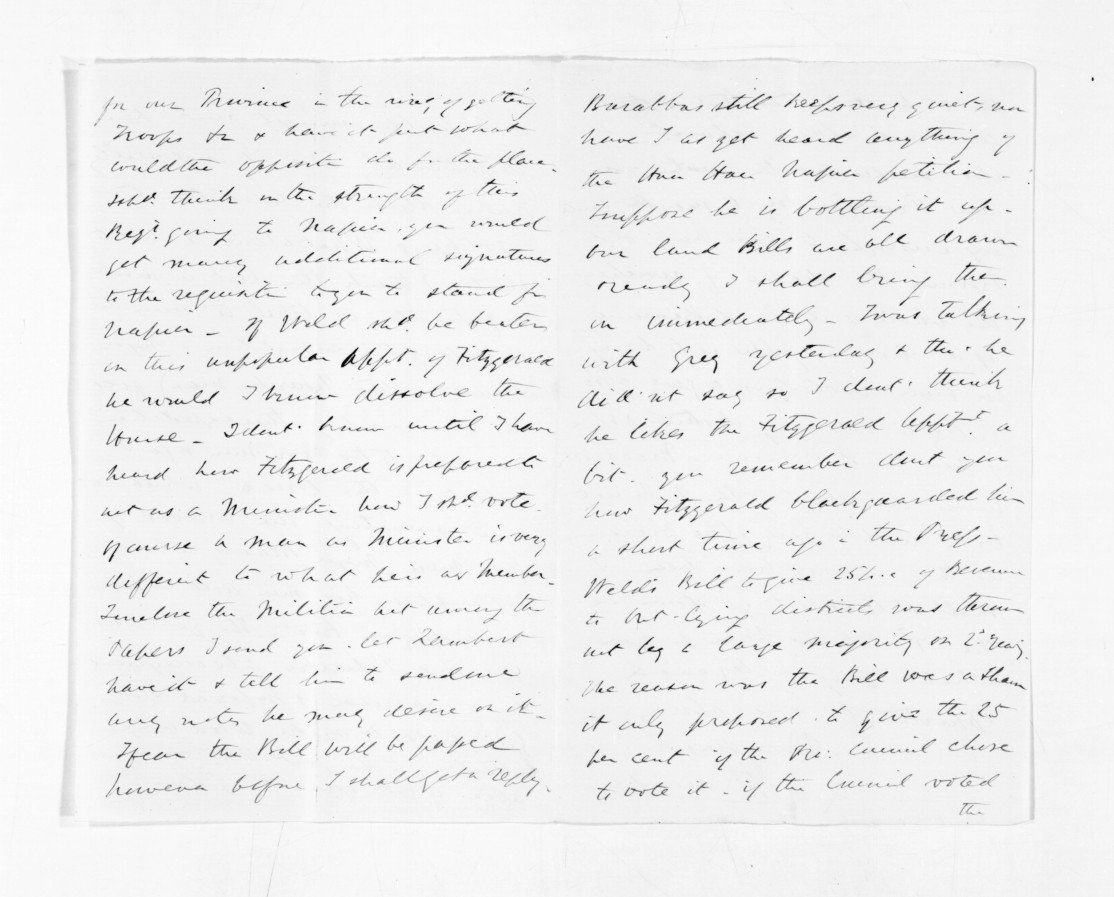 for our Province in the way of getting
Troops &c & have it put what
would the opposition do for the place.
I shd. think on the strength of this
Regt. going to Napier, you would
get many additional signatures
to the requisition to you to stand for
Napier - If Weld shd. be beaten
on this unpopular Appt. of Fitzgerald
he would I know dissolve the
House - I dont know until I have
heard how Fitzgerald is prepared to
act as a Minister how I shd. vote.
Of course a man as Minister is very
different to what he is as Member -
I enclose the Militia Act among the
Papers I send you. let Lambert
have it & tell him to send me
any notes he may desire on it -
I fear the Bill will be passed
however before I shall get a reply.
Barabbas still keeps very quiet, nor
have I as yet heard anything of
the Hau Hau Napier petition -
I suppose he is bottling it up -
our land Bills are all drawn
ready I shall bring them
in immediately - I was talking
with Grey yesterday & tho' he
did nt say so I dont think
he likes the Fitzgerald Apptt. a
bit. you remember dont you
how Fitzgerald blackguarded him
a short time ago in the Press -
Weld's Bill to give 25 p.c of Revenue
to out-lying districts was thrown
out by a large majority on 2d. readg.
The reason was the Bill was a sham
it only proposed to give the 25
per cent if the Pro: Council chose
to vote it - if the Council voted
the